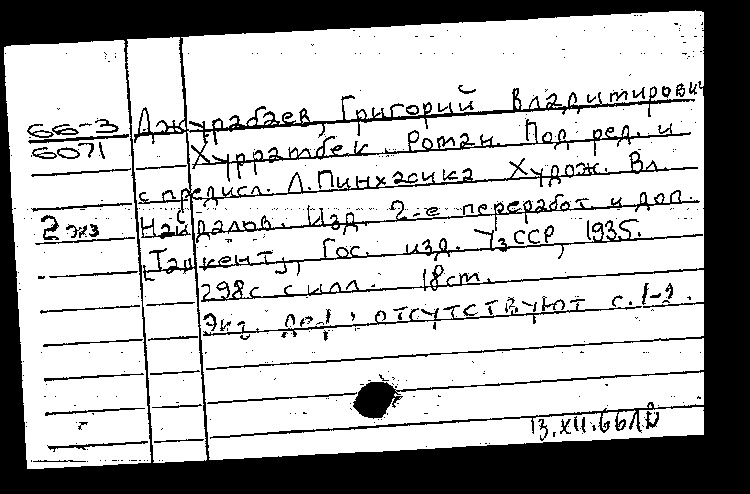 66-3 Джурабаев, Григорий Владимирович
6071 Хурратбек. Роман. Под ред. и
с предисл. Л. Пинхасика. Худож. Вл.
2 экз Найдалов. Изд. 2-е переработ. и доп.
[Ташкент], Гос. изд. УзССР, 1935.
298 с. с илл. 18 см.
Экз. деф.: отсутствуют с. 1-2.
13.XII.66